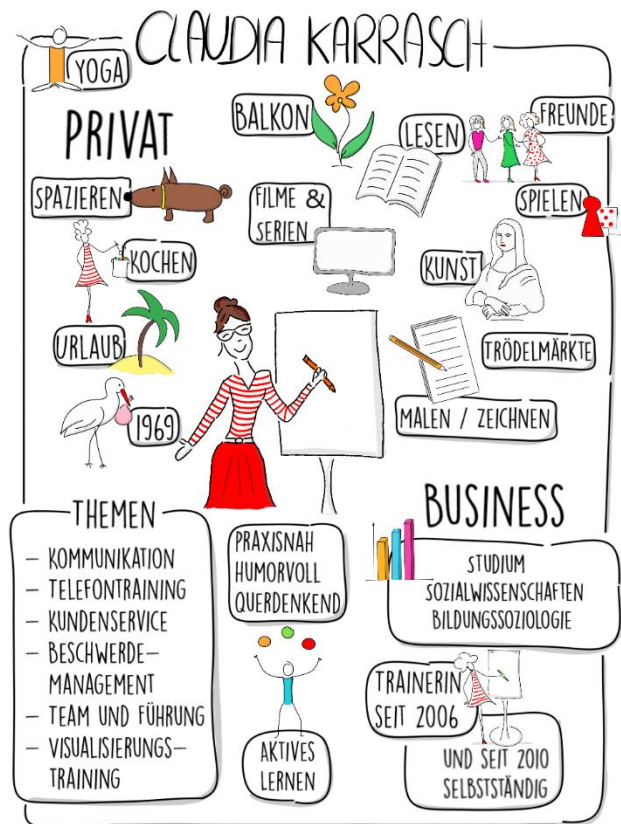 CLAUDIA KARRASCH
YOGA
PRIVAT
BALKON
LESEN
FREUNDE
SPAZIEREN
FILME &
SERIEN
SPIELEN
KOCHEN
KUNST
URLAUB
TRÖDELMÄRKTE
1969
MALEN / ZEICHNEN
THEMEN
– KOMMUNIKATION
– TELEFONTRAINING
– KUNDENSERVICE
– BESCHWERDE–
MANAGEMENT
– TEAM UND FÜHRUNG
– VISUALISIERUNGS–
TRAINING
PRAXISNAH
HUMORVOLL
QUERDENKEND
AKTIVES
LERNEN
BUSINESS
STUDIUM
SOZIALWISSENSCHAFTEN
BILDUNGSSOZIOLOGIE
TRAINERIN
SEIT 2006
UND SEIT 2010
SELBSTSTÄNDIG